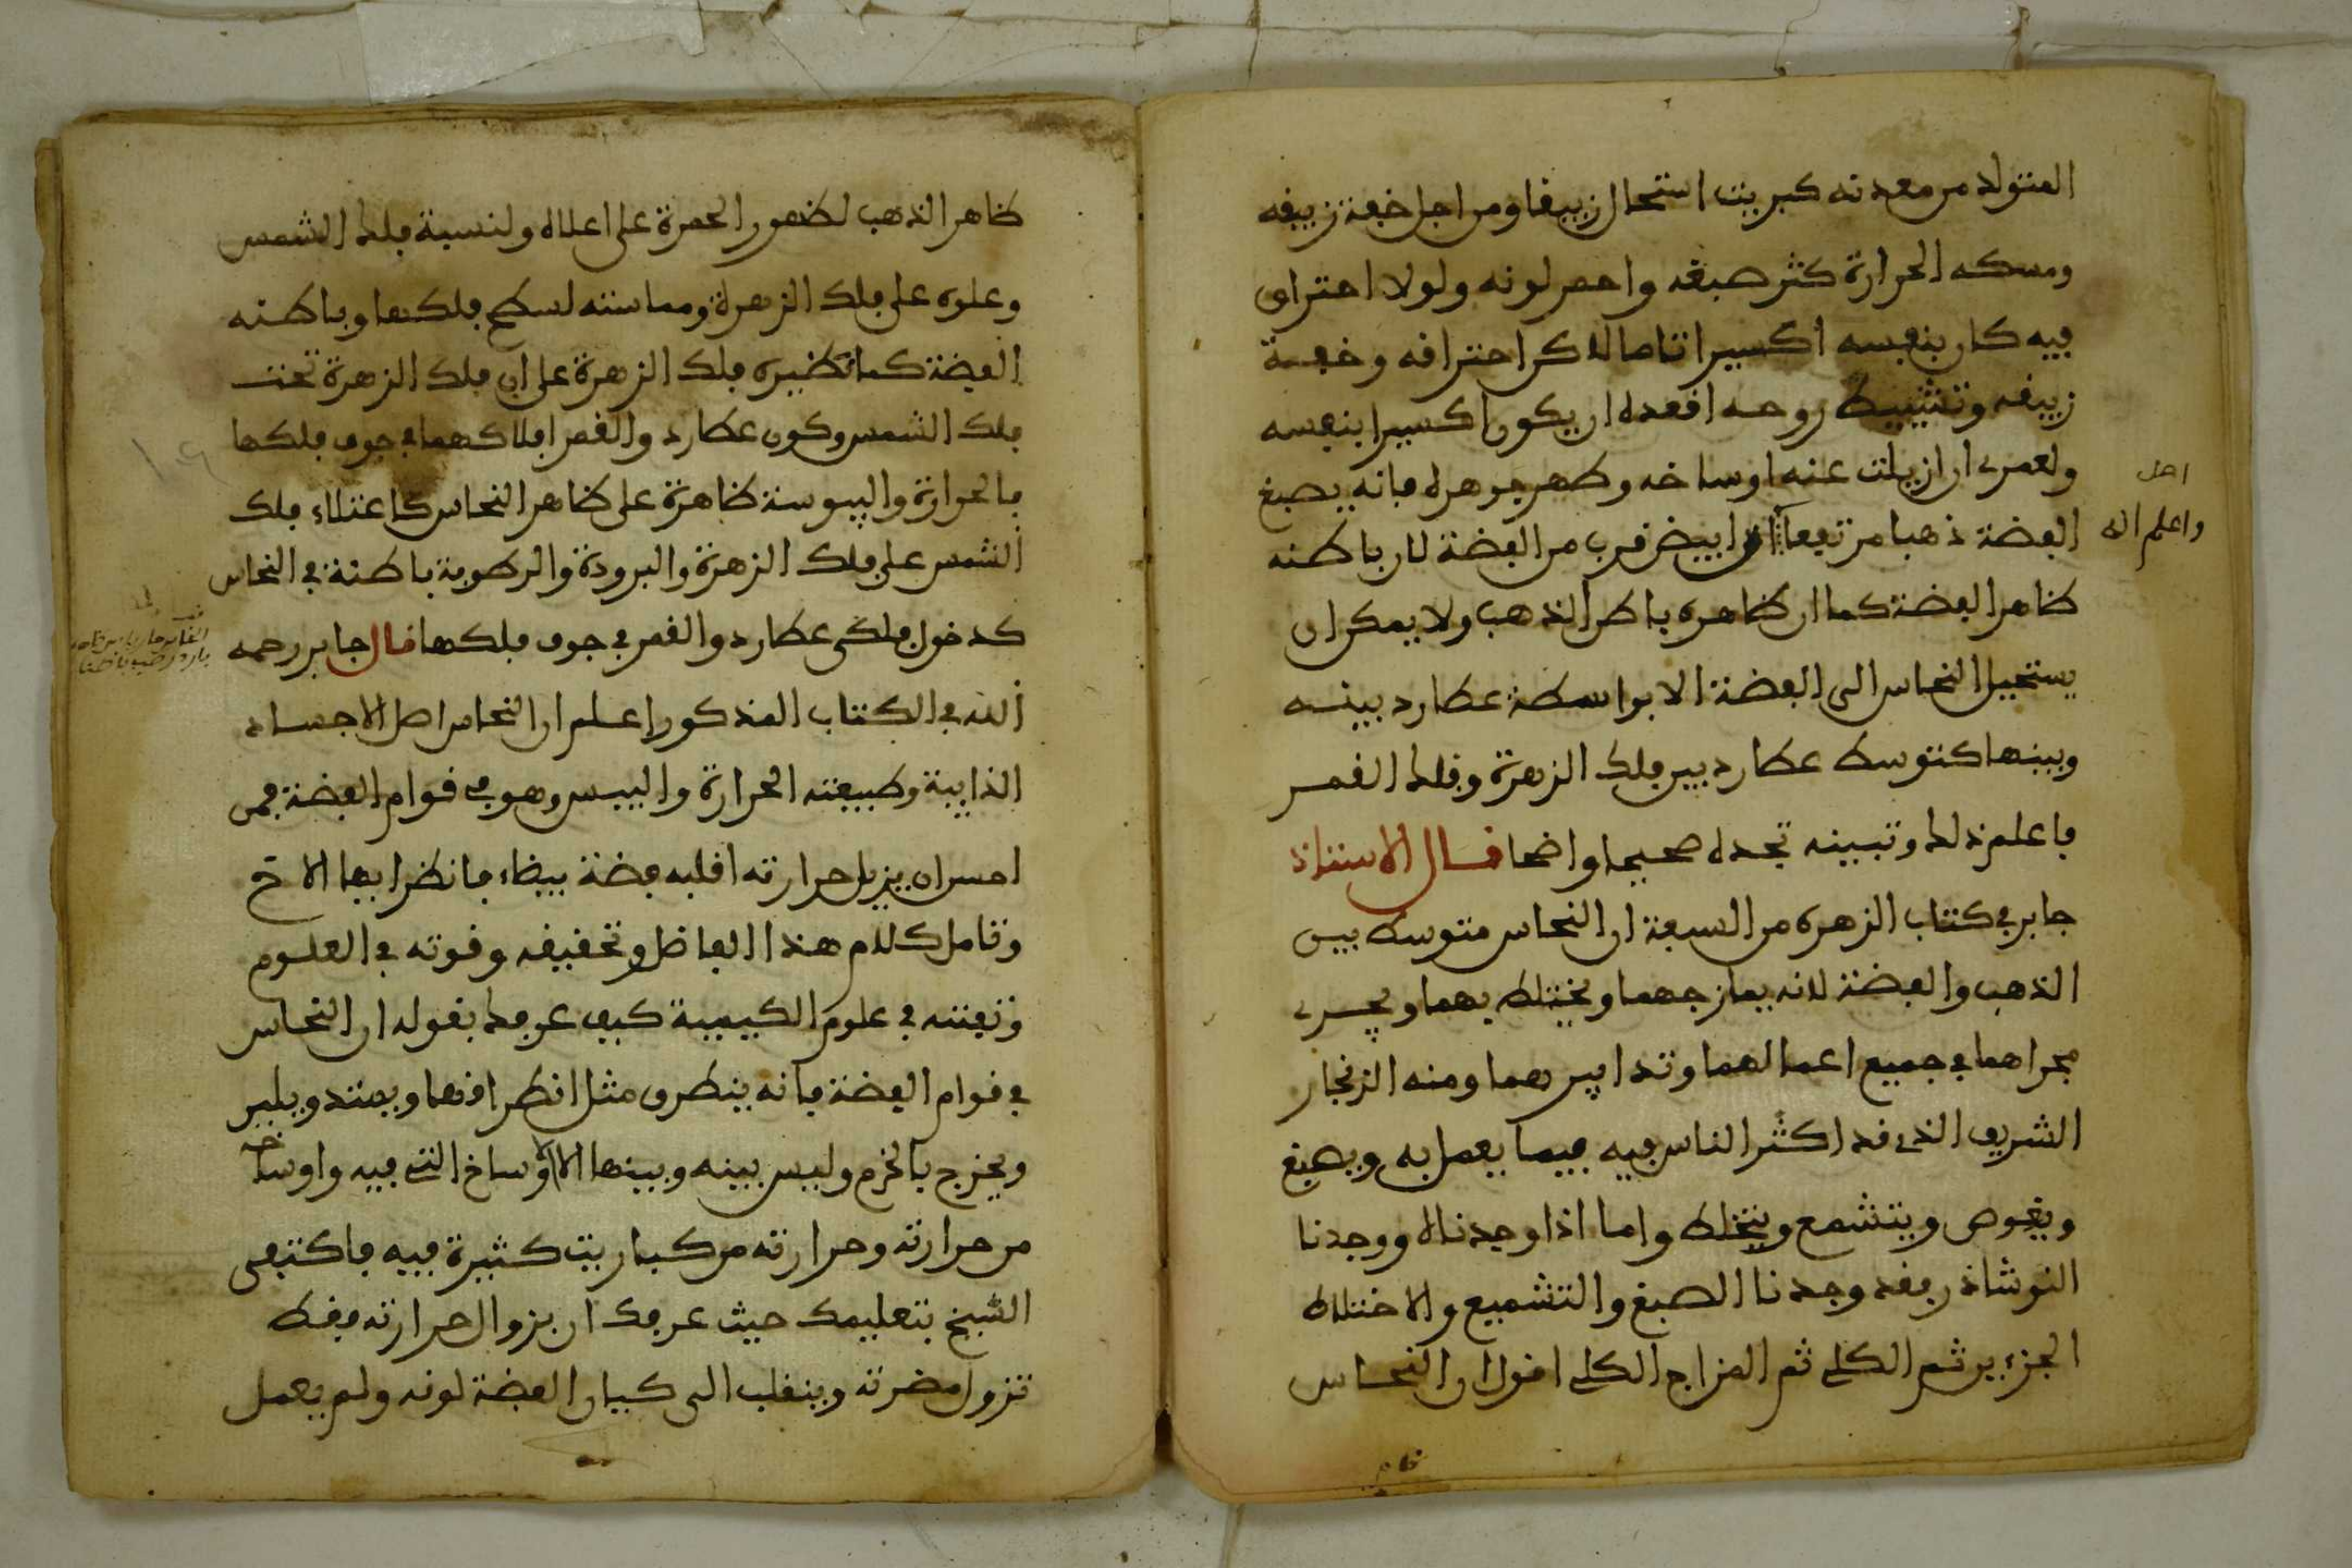 المتولد من معدنه كبريت استحال زيبقا ومن اجل خفة زيبقه
ومسكه الحرارة كثر صبغه واحمر لونه ولولا احتراق
فيه كان بنفسه اكسيرا تاما لاكن احتراقه وخفة
زيبقه وتشييط روحه اقعده ان يكون اكسيرا بنفسه
ولعمرى ان ازيلت عنه اوساخه وطهر جوهره فانه يصبغ
الفضة ذهبا مرتفعا ابيض قرب من الفضة لان باطنه
واعلم انه
ظاهر الفضة كما ان ظاهره باطن الذهب ولا يمكن ان
يستحيل النحاس الى الفضة الا بواسطة عطارد بينه
وبينها كتوسط عطارد بين فلك الزهرة وفلك القمر
فاعلم ذلك وتبينه تجده صحيحا واضحا قال الاستاذ
جابر في كتاب الزهرة من السبعة ان النحاس متوسط بين
الذهب والفضة لانه يمازجهما ويختلط بهما ويجرى
مجراهما في جميع اعمالهما وتدابيرهما ومنه الزنجار
الشريف الذى قد اكثر الناس فيه فيما يعمل به ويصبغ
ويغوص ويتشمع ويختلط واما اذا وجدناه ووجدنا
النوشاذر فقد وجدنا الصبغ والتشميع والاختلاط
الجزءين ثم الكلى ثم المزاج الكلى اقول ان النحاس
ظاهر الذهب لظهور الحمرة على اعلاه ولنسبة فلك الشمس
وعلوه على فلك الزهرة ومماسته لسطح فلكها وباطنه
الفضة كما نظيره فلك الزهرة على ان فلك الزهرة تحت
فلك الشمس وكون عطارد والقمر افلاكهما في جوف فلكها
فالحرارة واليبوسة ظاهرة على ظاهر النحاس كاعتلاء فلك
الشمس على فلك الزهرة والبرودة والرطوبة باطنة في النحاس
كدخول فلكى عطارد والقمر في جوف فلكها قال جابر رحمه
الله في الكتاب المذكور اعلم ان النحاس اصل الاجساد
الذايبة وطبيعته الحرارة واليبس وهو في قوام الفضة فمن
احسن ان يزيل حرارته اقلبه فضة بيضاء فانظر ايها الاخ
وتامل كلام هذا الفاضل وتحقيقه وقوته في العلوم
وتفننه في علوم الكيمية كيف عرفك بقوله ان النحاس
في قوام الفضة فانه ينطرق مثل انطراقها ويمتد ويلين
ويخرج بالخزم وليس بينه وبينها الا الاوساخ التى فيه واوساخه
من حرارته وحرارته من كباريت كثيرة فيه فاكتفى
الشيخ بتعليمك حيث عرفك ان بزوال حرارته فقط
تزول مضرته وينقلب الى كيان الفضة لونه ولم يعمل